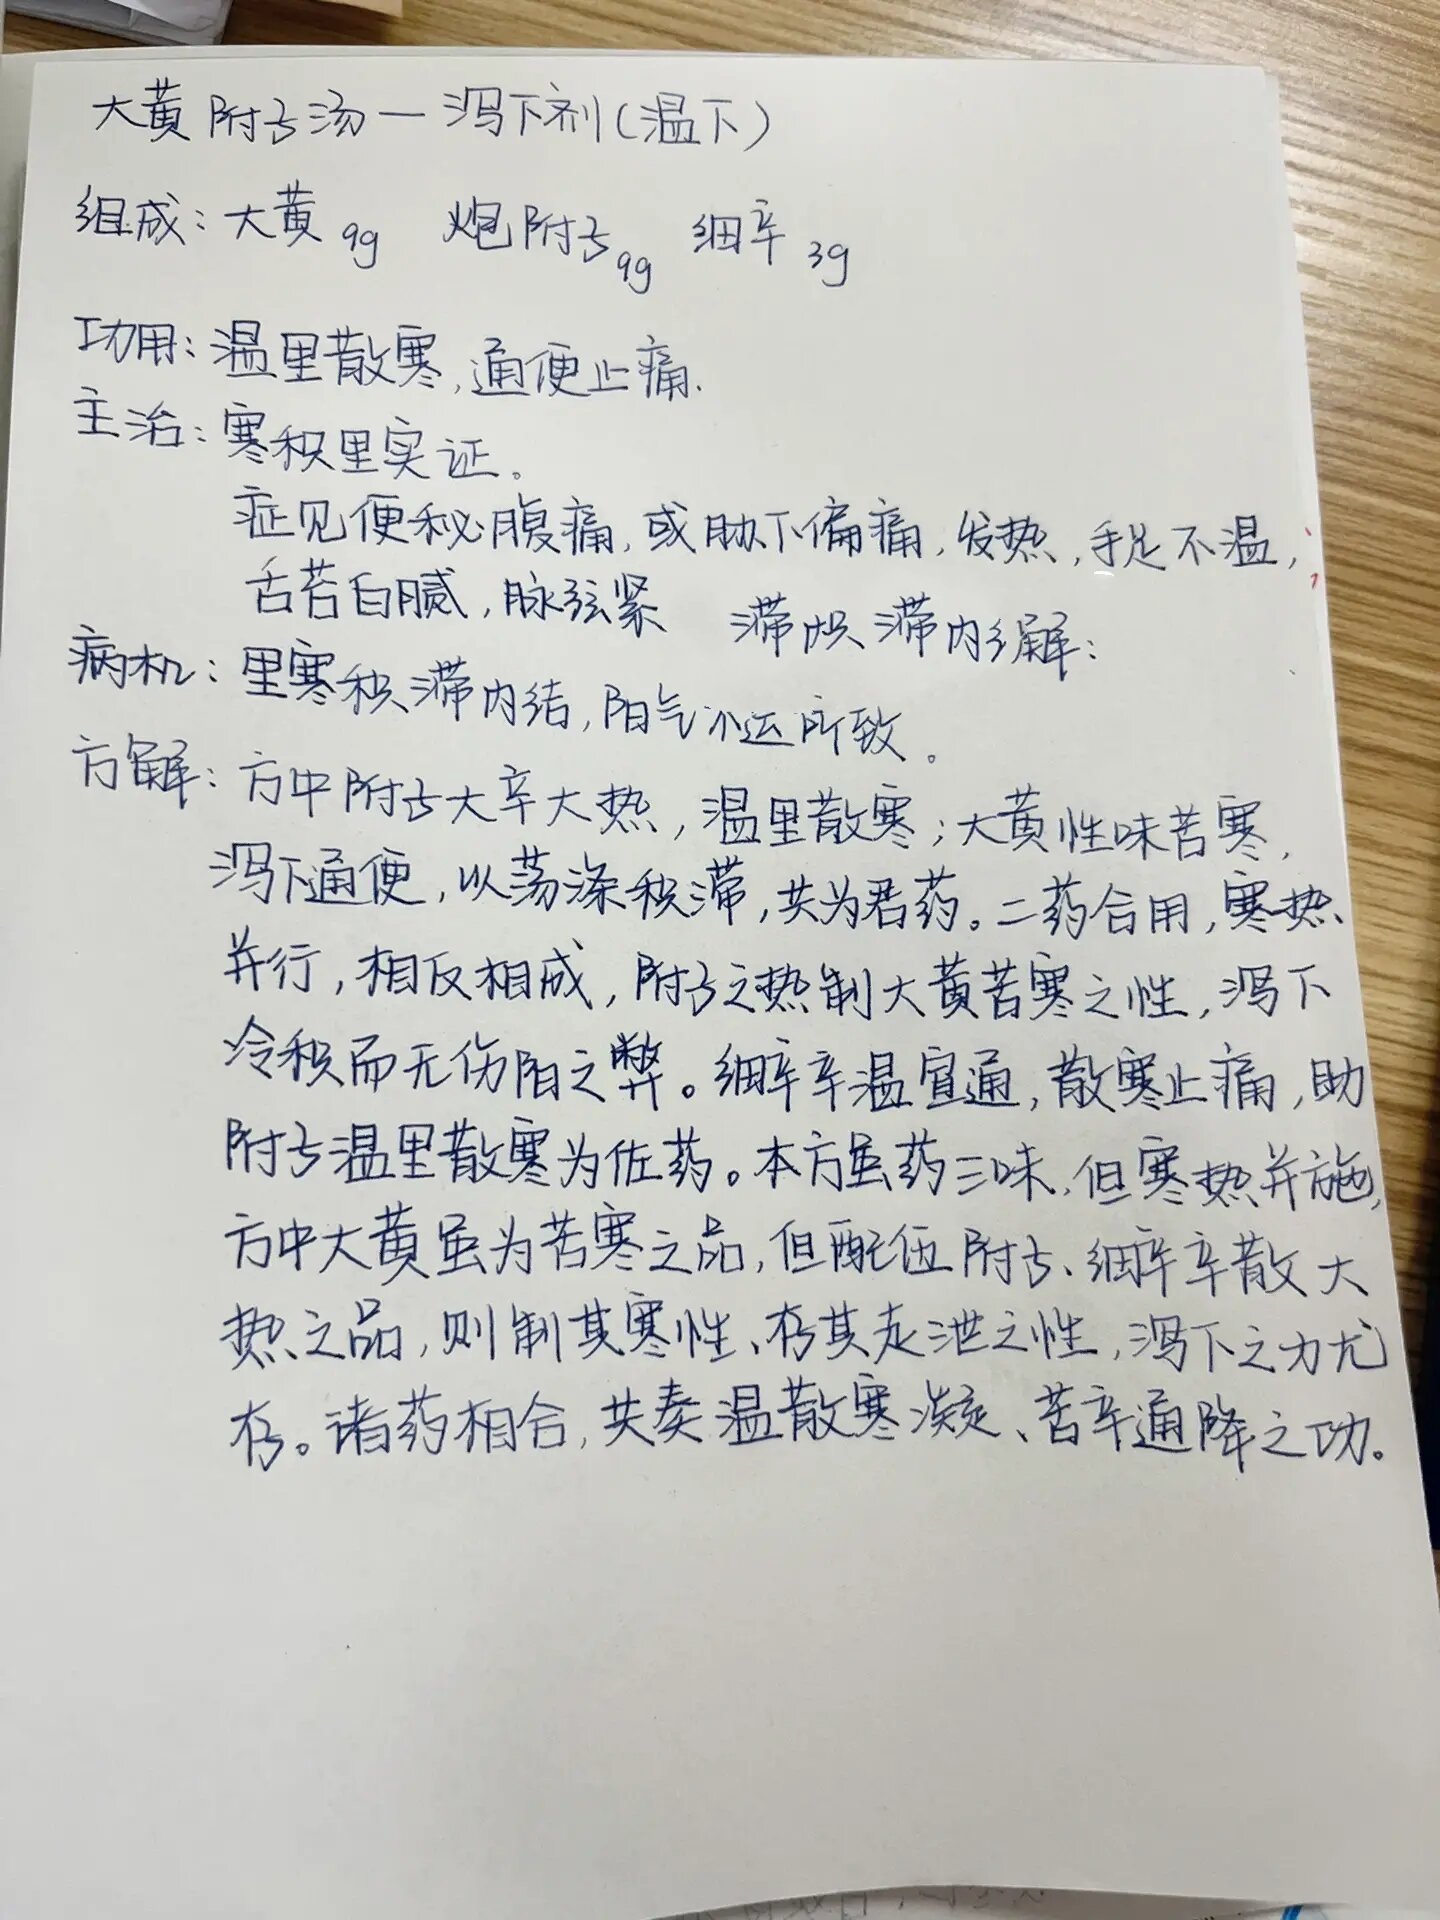 大黄附子汤一泻下剂(温下)
组成:大黄9g 炮附子9g 细辛3g
功用:温里散寒,通便止痛.
主治:寒积里实证。
症见便秘腹痛,或胁下偏痛,发热,手足不温,
舌苔白腻,脉弦紧 滞积滞内结解:
病机:里寒积滞内结,阳气不运所致。
方解:方中附子大辛大热,温里散寒;大黄性味苦寒,
泻下通便,以荡涤积滞,共为君药。二药合用,寒热
并行,相反相成,附子之热制大黄苦寒之性,泻下
冷积而无伤阳之弊。细辛辛温宣通,散寒止痛,助
附子温里散寒为佐药。本方虽药三味,但寒热并施,
方中大黄虽为苦寒之品,但配伍附子、细辛辛散大
热之品,则制其寒性、存其走泄之性,泻下之力尤
存。诸药相合,共奏温散寒凝、苦辛通降之功。